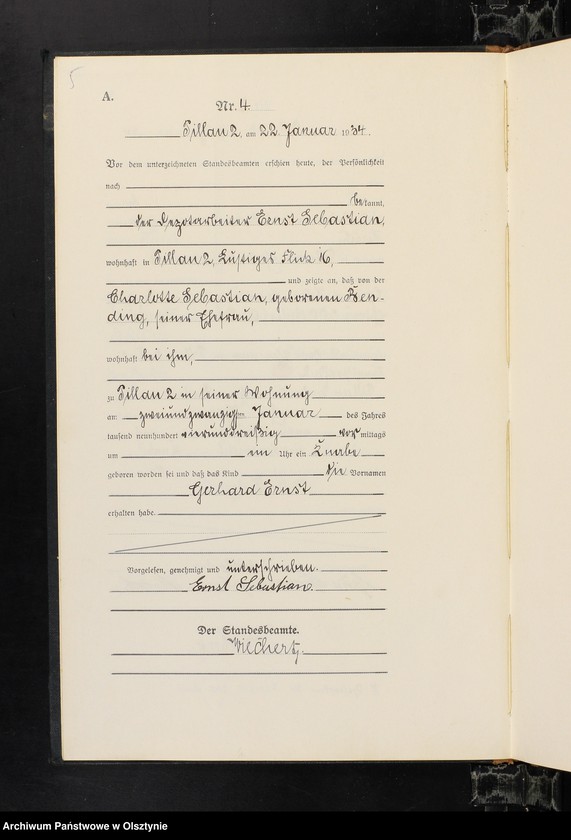 5
A.
Nr. 4.
Pillau 2, am 22. Januar 1934.
Vor dem unterzeichneten Standesbeamten erschien heute, der Persönlichkeit
nach
bekannt,
der Depotarbeiter Ernst Sebastian,
wohnhaft in Pillau 2, Lustiges Flick 16,
und zeigte an, daß von der
Charlotte Sebastian, geborenen Ben-
ding, seiner Ehefrau,
wohnhaft bei ihm,
zu Pillau 2 in seiner Wohnung
am zweiundzwanzigsten Januar des Jahres
tausend neunhundert vierunddreißig vormittags
um ein Uhr ein Knabe
geboren worden sei und daß das Kind die Vornamen
Gerhard Ernst
erhalten habe.
Vorgelesen, genehmigt und unterschrieben.
Ernst Sebastian.
Der Standesbeamte.
Archiwum Państwowe w Olsztynie